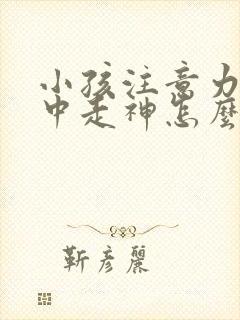 小孩注意力
中走神怎麼
靳彦麗